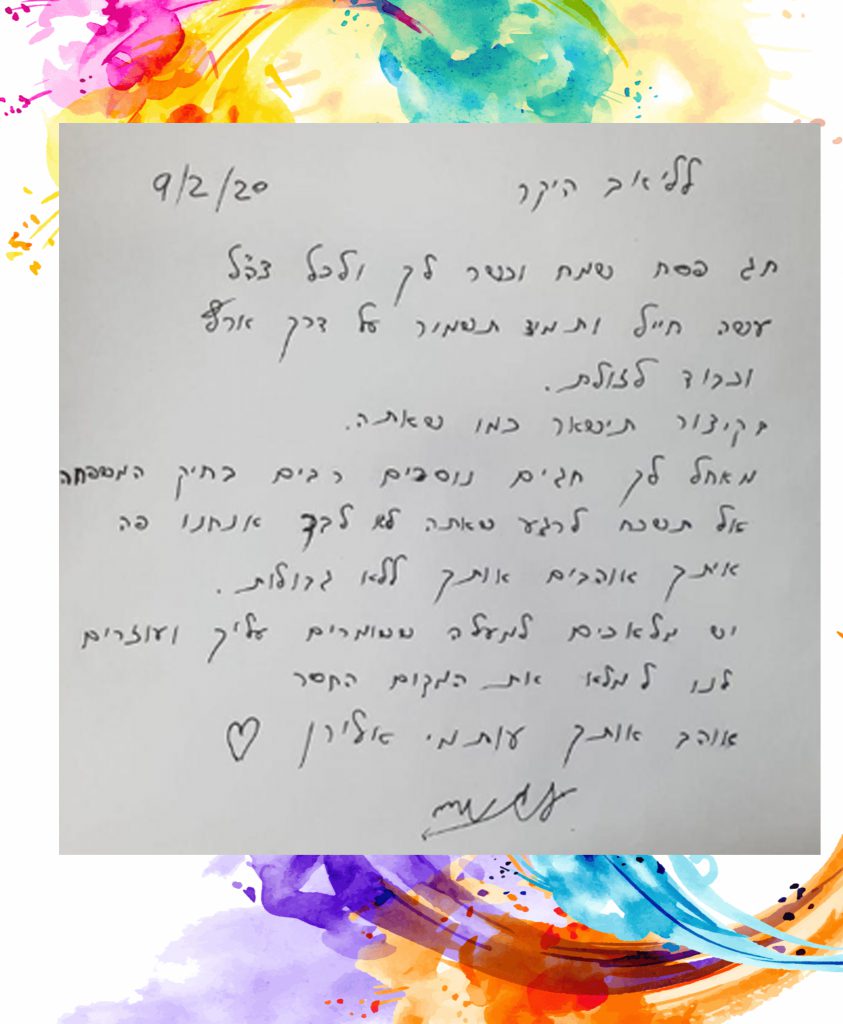 9/2/20
לליאב היקר
חג פסח שמח וכשר לך ולכל צה"ל
עשה חייל ותמיד תשמור על דרך ארץ
וכבוד לזולת.
בקיצור תישאר כמו שאתה.
מאחל לך חגים נוספים רבים בחיק המשפחה
אל תשכח לרגע שאתה לא לבד אנחנו פה
איתך אוהבים אותך ללא גבולות.
יש מלאכים למעלה ששומרים עליך ועוזרים
לנו למלא את המקום החסר
אוהב אותך עותמי אלירן ♡